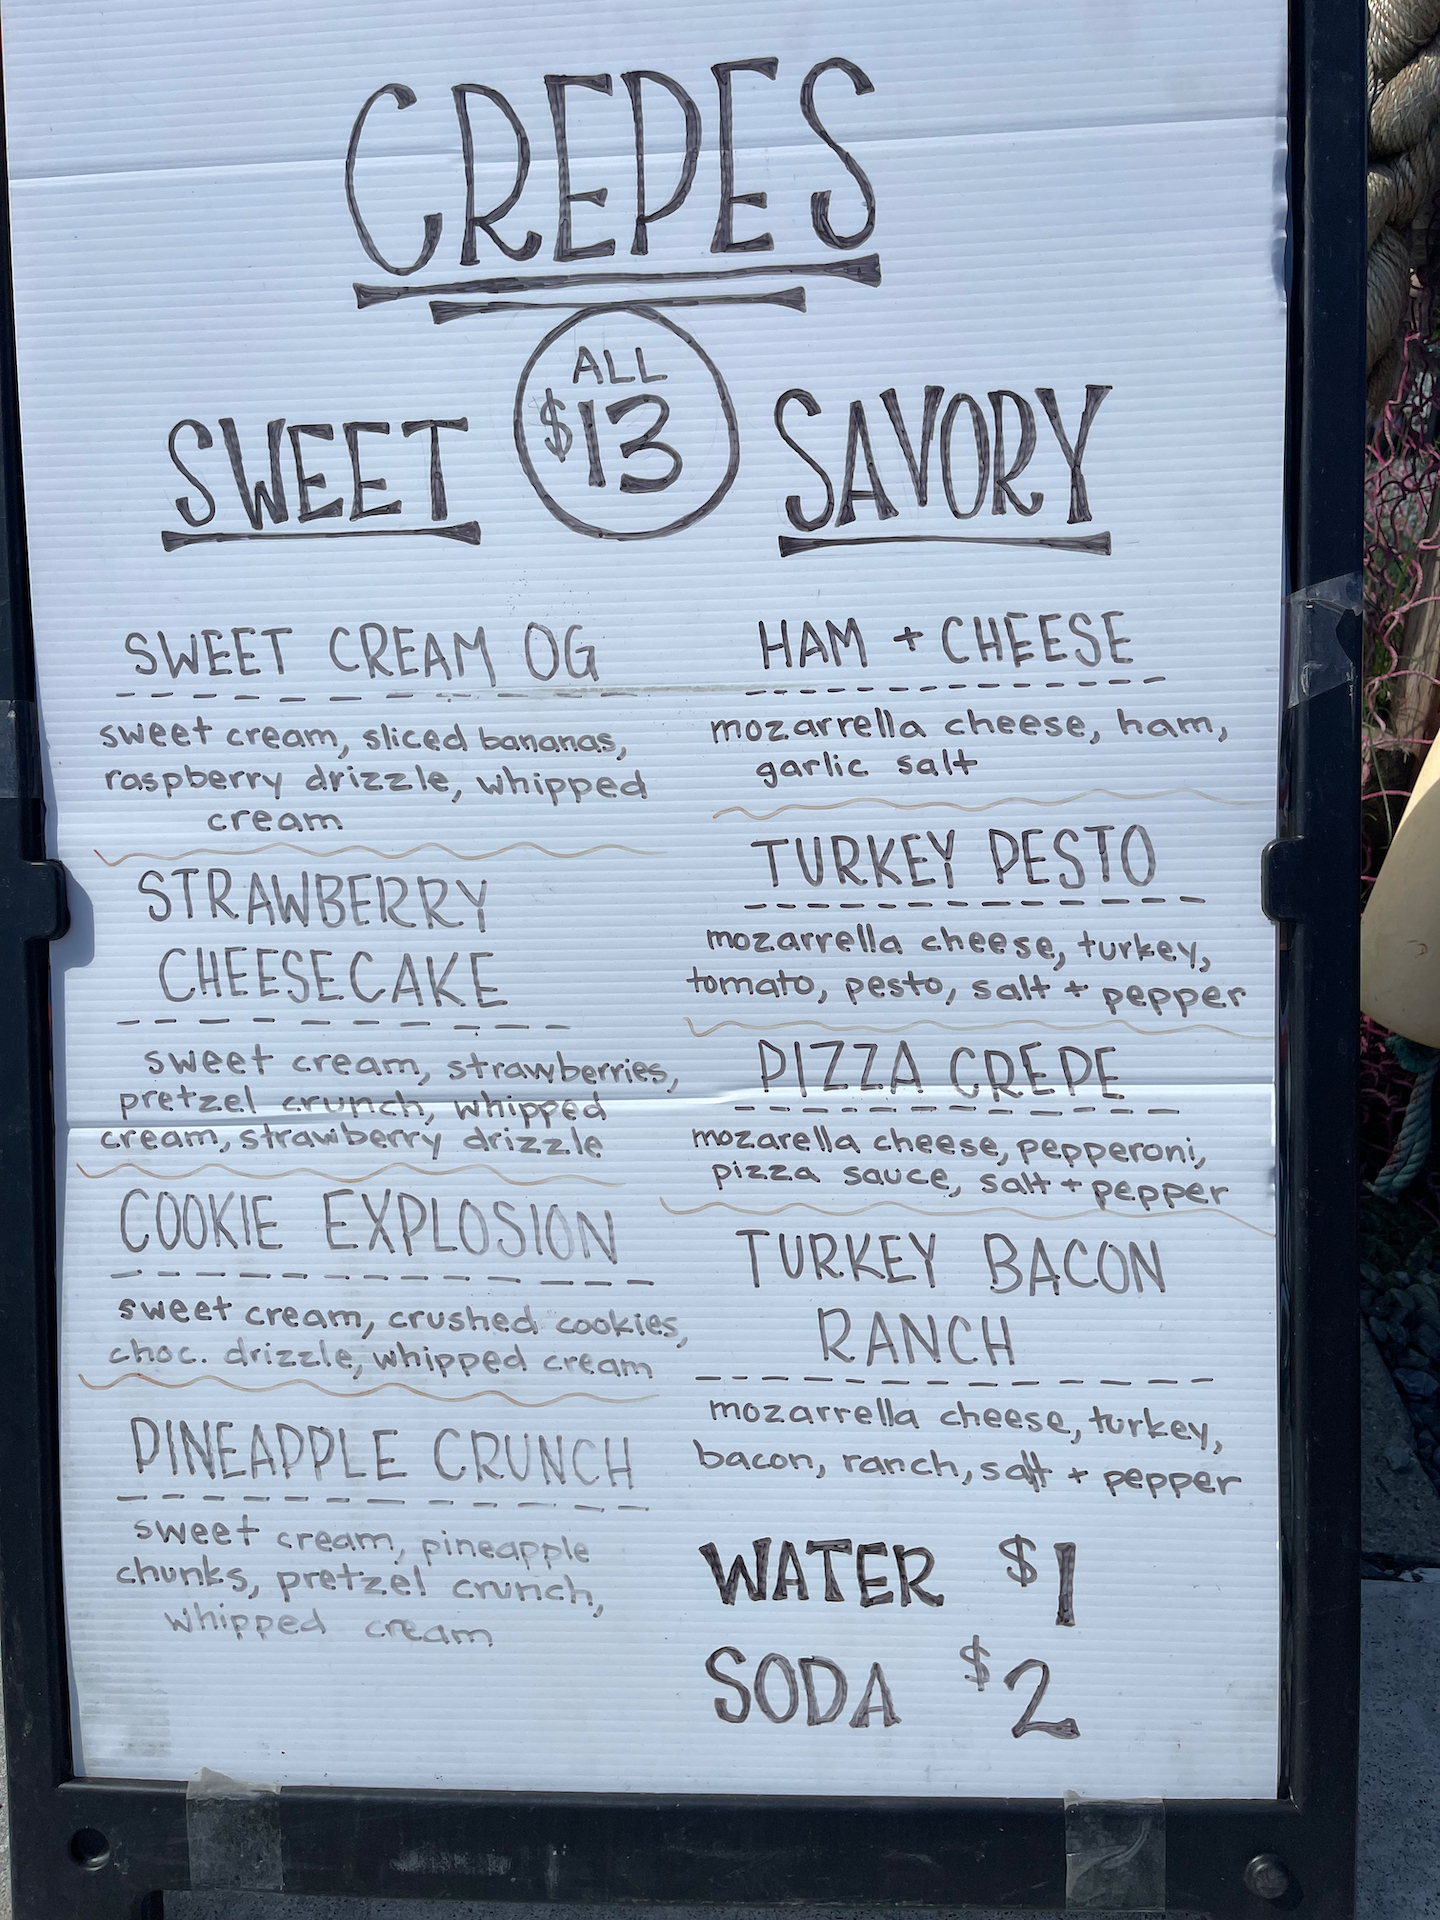 CREPES
ALL
$13
SWEET
SWEET CREAM OG
sweet cream, sliced bananas,
raspberry drizzle, whipped
cream
STRAWBERRY
CHEESECAKE
sweet cream, strawberries,
pretzel crunch, whipped
cream, strawberry drizzle
COOKIE EXPLOSION
sweet cream, crushed cookies,
choc. drizzle, whipped cream
PINEAPPLE CRUNCH
sweet cream, pineapple
chunks, pretzel crunch,
whipped cream
SAVORY
HAM + CHEESE
mozarrella cheese, ham,
garlic salt
TURKEY PESTO
mozarrella cheese, turkey,
tomato, pesto, salt + pepper
PIZZA CREPE
mozarella cheese, pepperoni,
pizza sauce, salt + pepper
TURKEY BACON
RANCH
mozarrella cheese, turkey,
bacon, ranch, salt + pepper
WATER $1
SODA $2